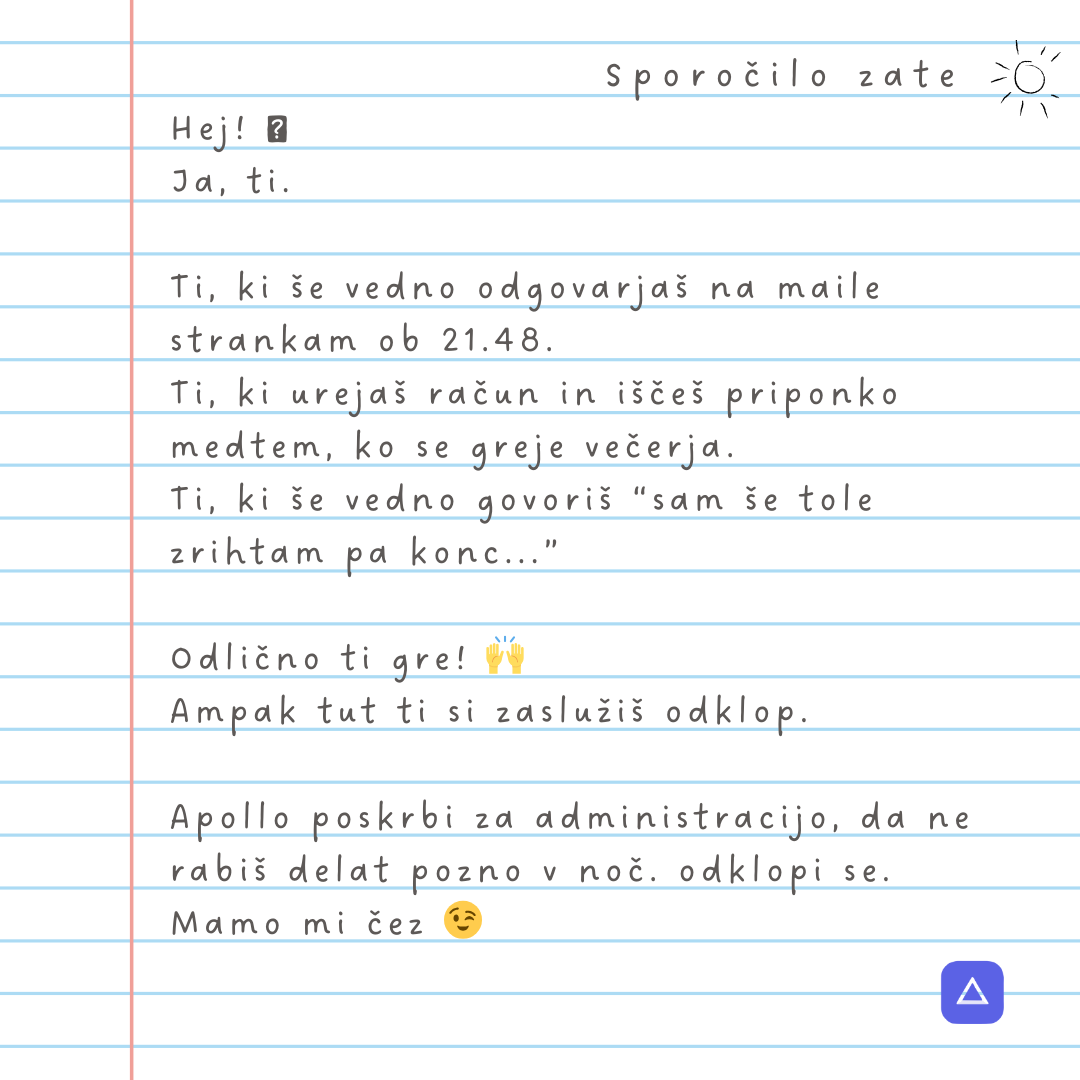 Sporočilo zate
Hej! �
Ja, ti.
Ti, ki še vedno odgovarjaš na maile
strankam ob 21.48.
Ti, ki urejaš račun in iščeš priponko
medtem, ko se greje večerja.
Ti, ki še vedno govoriš “sam še tole
zrihtam pa konc...”
Odlično ti gre! 🙌
Ampak tut ti si zaslužiš odklop.
Apollo poskrbi za administracijo, da ne
rabiš delat pozno v noč. odklopi se.
Mamo mi čez 😉